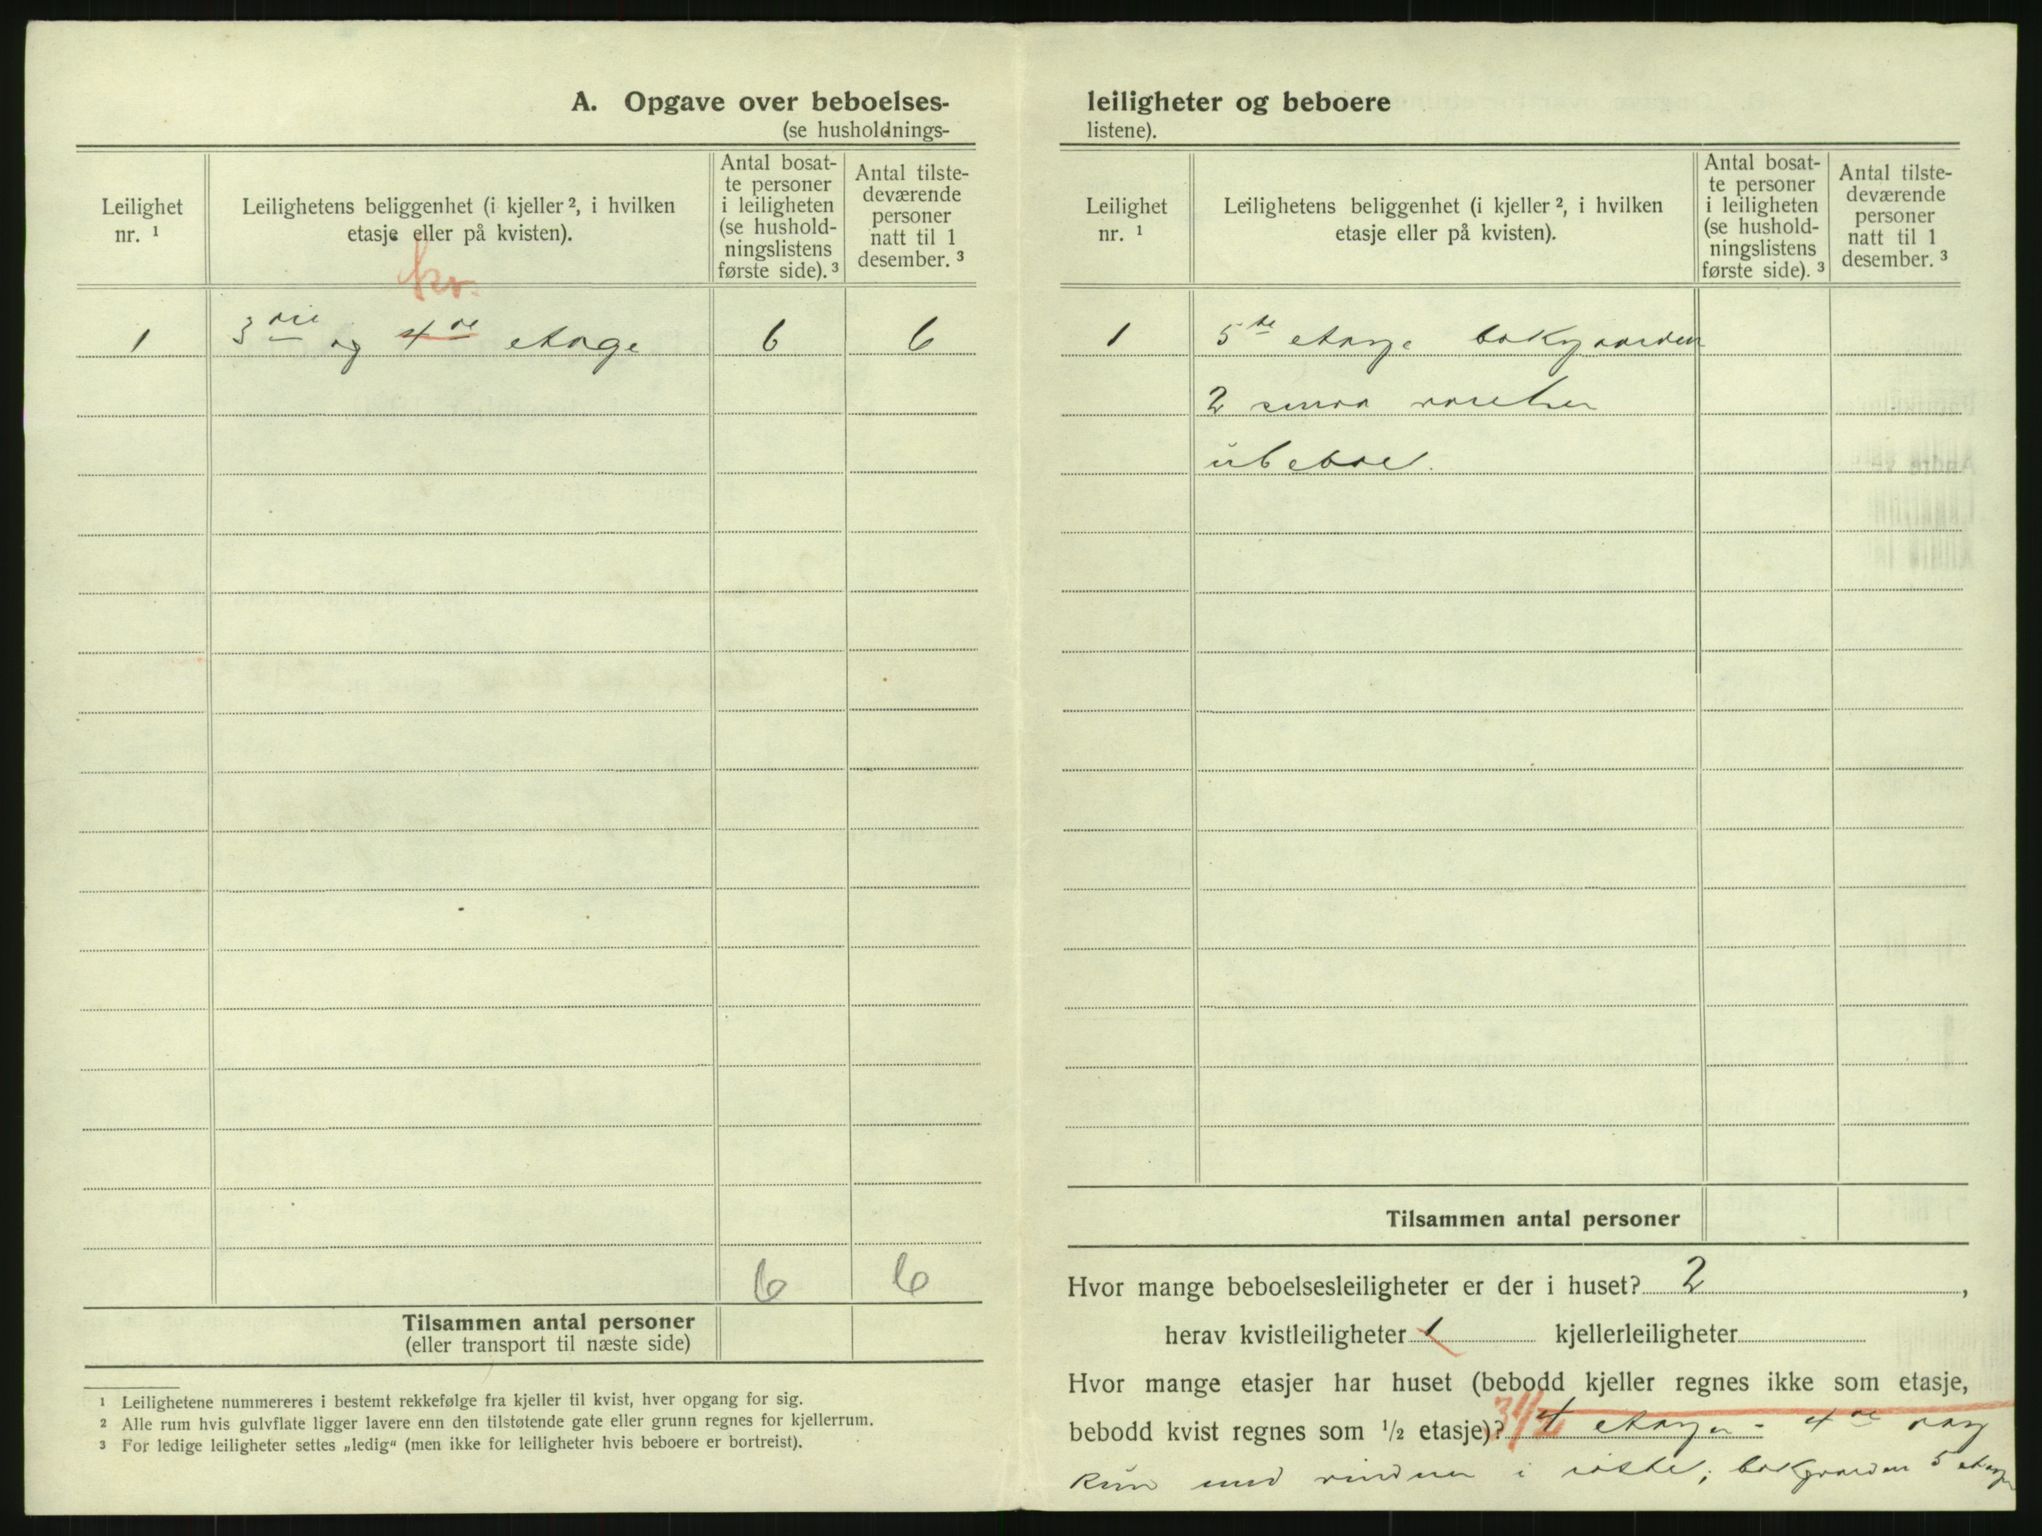 A. Opgave over beboelses-
(se husholdnings-
Leilighet
nr. 1
Leilighetens beliggenhet (i kjeller 2, i hvilken
etasje eller på kvisten).
Antal bosat-
te personer
i leiligheten
(se hushold-
ningslistens
første side). 3
Antal tilste-
deværende
personer
natt til 1
desember. 3
kv.
1 3die og 4de etage 6 6
6 6
Tilsammen antal personer
(eller transport til næste side)
1 Leilighetene nummereres i bestemt rekkefølge fra kjeller til kvist, hver opgang for sig.
2 Alle rum hvis gulvflate ligger lavere enn den tilstøtende gate eller grunn regnes for kjellerrum.
3 For ledige leiligheter settes „ledig“ (men ikke for leiligheter hvis beboere er bortreist).
leiligheter og beboere
listene).
Leilighet
nr. 1
Leilighetens beliggenhet (i kjeller 2, i hvilken
etasje eller på kvisten).
Antal bosat-
te personer
i leiligheten
(se hushold-
ningslistens
første side). 3
Antal tilste-
deværende
personer
natt til 1
desember. 3
1 5te etage bakgaarden
2 smaa værelser
ubeboet.
Tilsammen antal personer
Hvor mange beboelsesleiligheter er der i huset? 2 ,
herav kvistleiligheter 1 kjellerleiligheter
Hvor mange etasjer har huset (bebodd kjeller regnes ikke som etasje,
bebodd kvist regnes som 1/2 etasje)? 3 1/2 4 etager - 4de
kun med vinduer i ; bakgaarden 5 etager